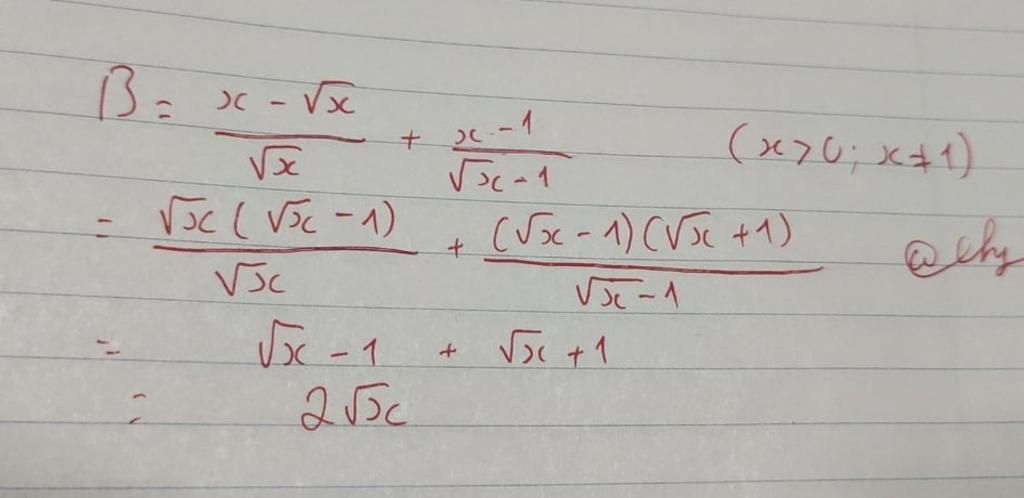 B = (x - √x)/√x + (x - 1)/(√x - 1) (x > 0; x ≠ 1)
= √x(√x - 1)/√x + (√x - 1)(√x + 1)/(√x - 1)
= √x - 1 + √x + 1
= 2√x